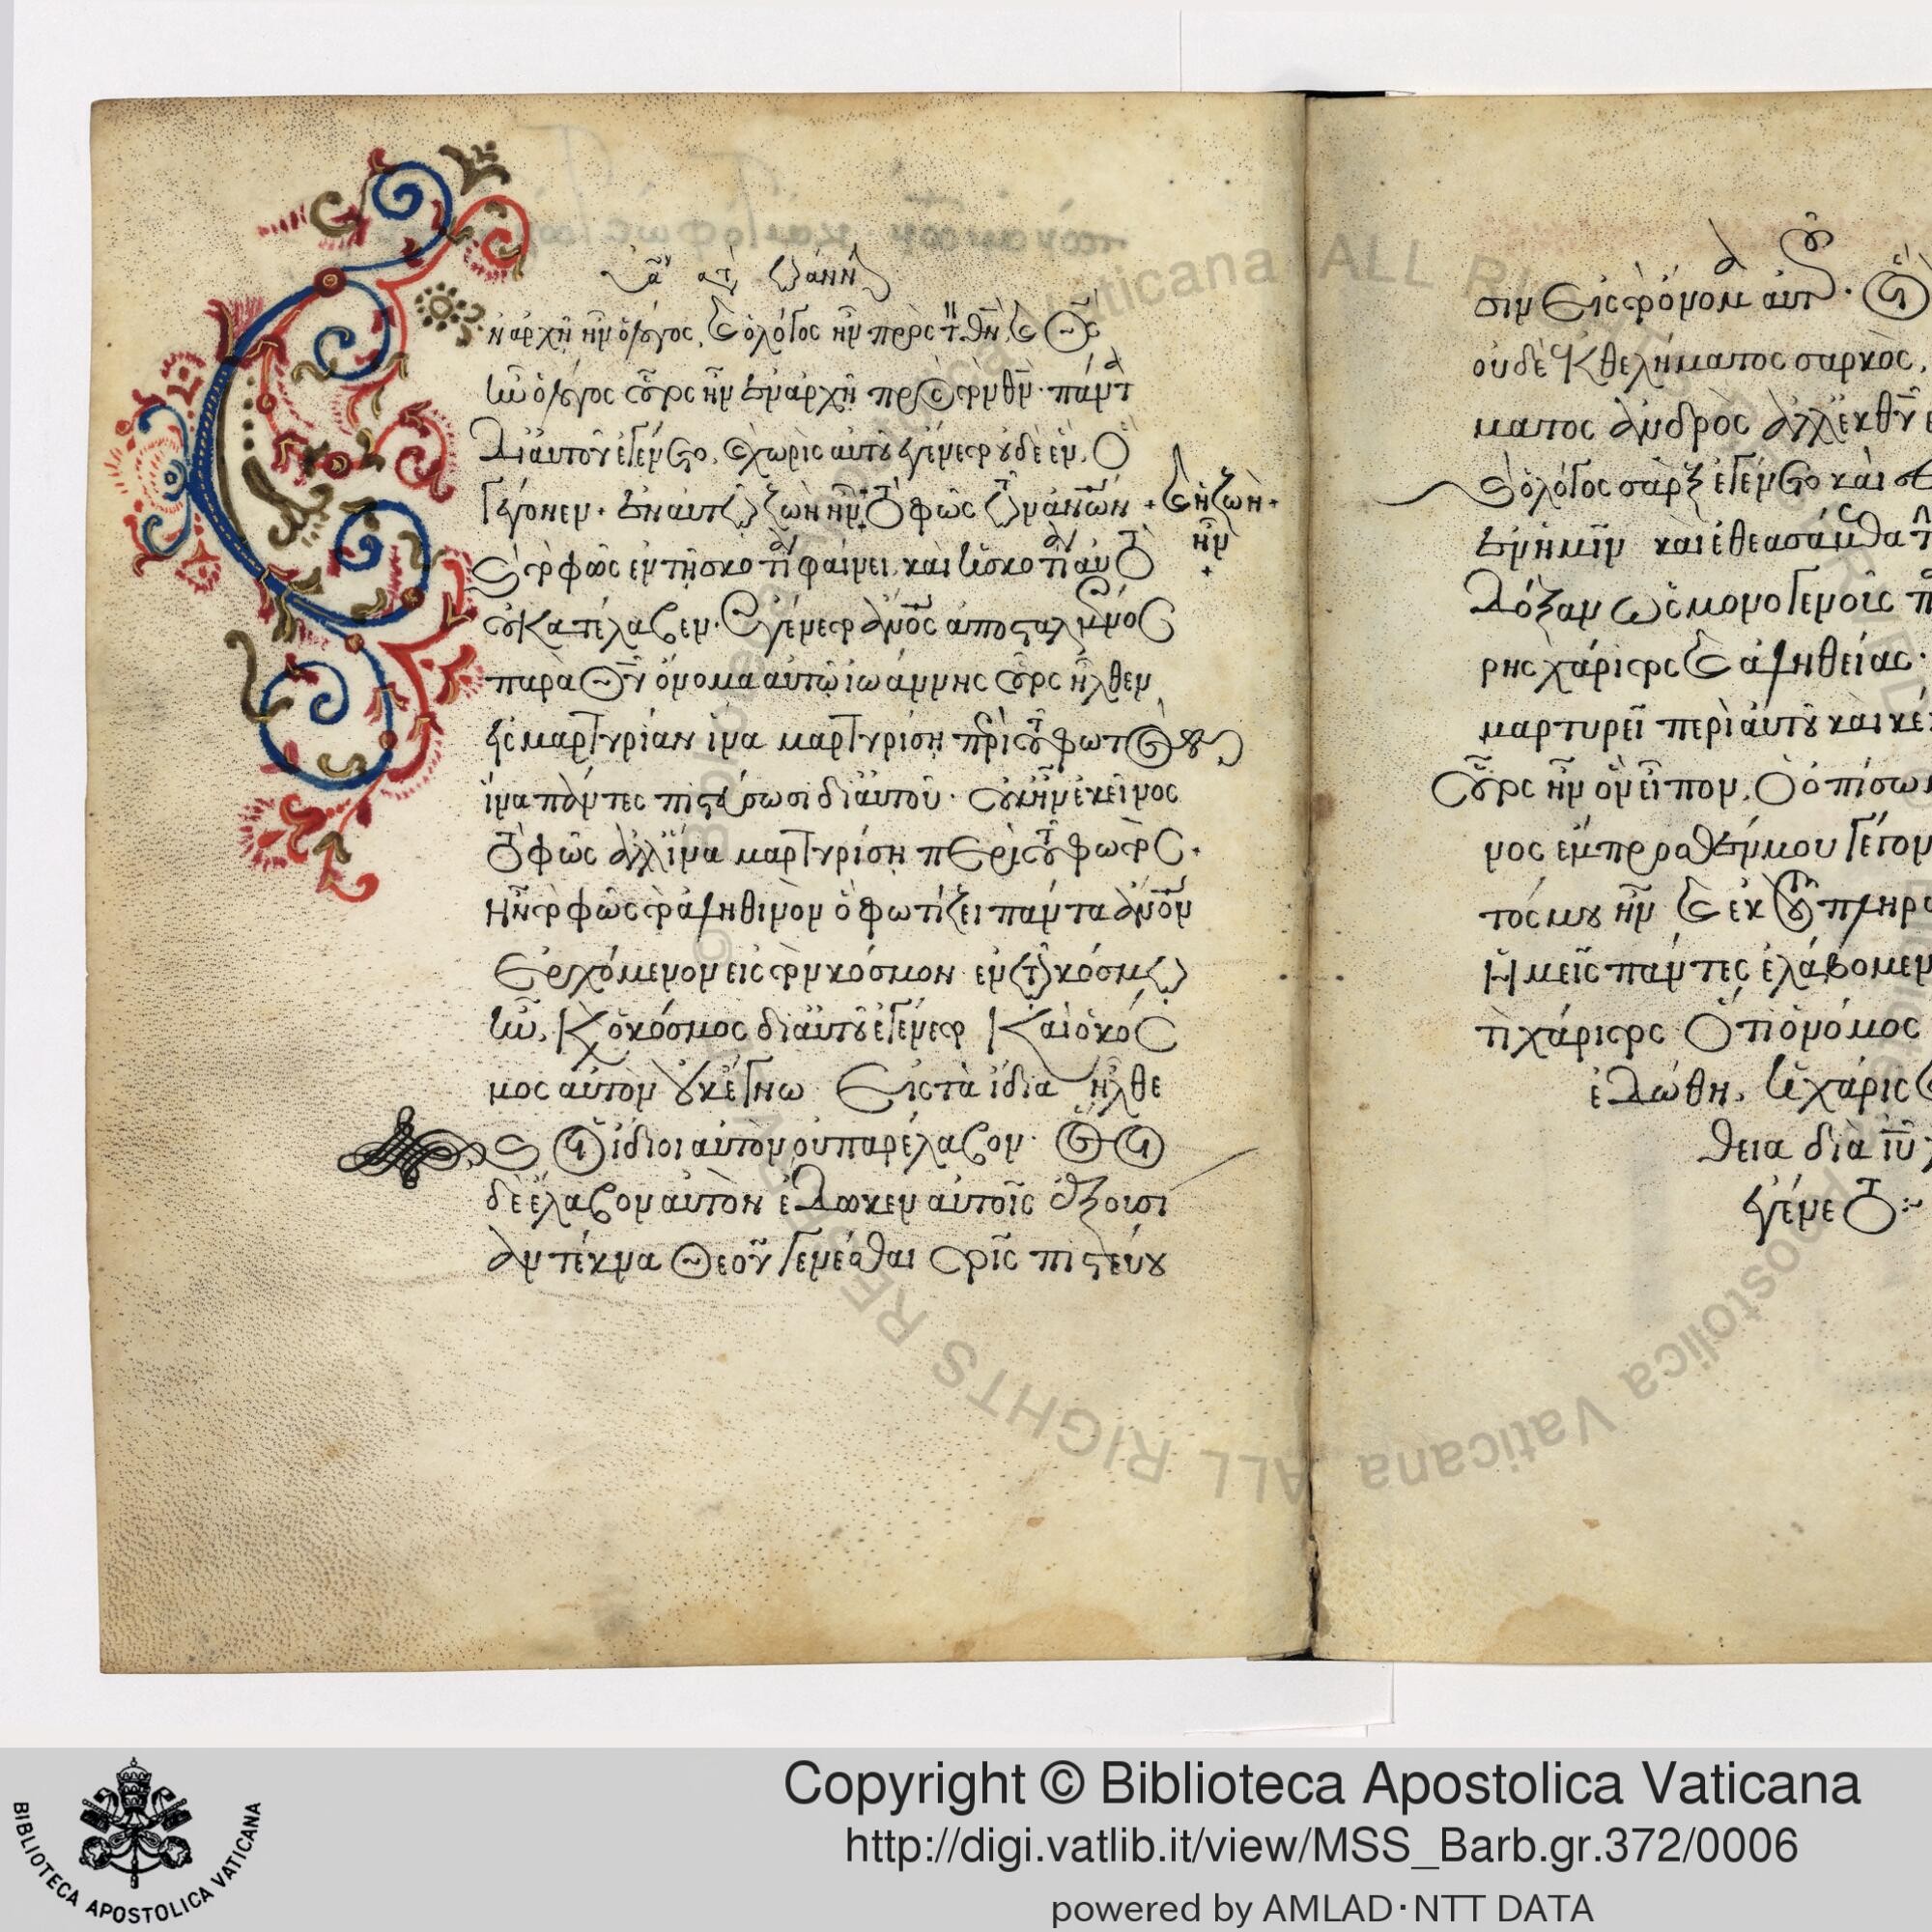 ν ἀρχῆ ἦν ὁ λόγος, καὶ ὁ λόγος ἦν πρὸς τ θν, καὶ θς
ἦν ὁ λόγος οὗτος ἦν ἐν ἀρχῆ πρὸς τὸν θν· πάντα
δι αὐτοῦ ἐγένετο, καὶ χωρὶς αὐτοῦ ἐγένετο οὐδὲ ἓν, ὃ
γέγονεν· ἐν αὐτῶ ζωὴ ἦν τὸ φῶς τῶν ἀνων
+ καὶ ἡ ζωὴ +
ἦν
+
καὶ τὸ φῶς ἐν τῆ σκοτία φαίνει, καὶ ἡ σκοτία αὐτὸ
οὐ κατέλαβεν· Ἐγένετο ἀνος ἀπεσταλμένος
παρὰ θυ ὄνομα αὐτῶ ἰωάννης οὗτος ἦλθεν
εἰς μαρτυρίαν ἵνα μαρτυρήση περὶ τοῦ φωτὸς
ἵνα πάντες πιστεύσωσι δι αὐτοῦ· οὐκ ἦν ἐκεῖνος
τὸ φῶς ἀλλ ἵνα μαρτυρήση περὶ τοῦ φωτὸς.
Ἦν τὸ φῶς τὸ ἀληθινὸν ὃ φωτίζει πάντα ἀνον
Ἐρχόμενον εἰς τὸν κόσμον ἐν τῶ κόσμω
ἦν, κ ὁ κόσμος δι αὐτοῦ ἐγένετο Καὶ ὁ κόσ
μος αὐτὸν οὐκ ἔγνω Εἰς τὰ ἴδια ἦλθε
καὶ οἱ ἴδιοι αὐτὸν οὐ παρέλαβον· ὅσοι
δὲ ἔλαβον αὐτὸν ἔδωκεν αὐτοῖς ἐξουσί
αν τέκνα θεοῦ γενέσθαι τοῖς πιστεύου
σιν Εἰς τὸ ὄνομα αὐτοῦ· οἳ
οὐδὲ ἐκ θελήματος σαρκὸς,
ματος ἀνδρὸς ἀλλ ἐκ θυ
καὶ ὁ λόγος σὰρξ ἐγένετο καὶ
ἐν ἡμῖν καὶ ἐθεασάμεθα τ
δόξαν ὡς μονογενοῦς π
ρης χάριτος καὶ ἀληθείας·
μαρτυρεῖ περὶ αὐτοῦ καὶ κέ
οὗτος ἦν ὃν εἶπον, Ὁ ὀπίσω
νος ἔμπροσθέν μου γέγον
τός μου ἦν καὶ ἐκ τοῦ πληρ
Ἡμεῖς πάντες ἐλάβομεν
τὶ χάριτος Ὅτι ὁ νόμος
ἐδόθη, ἡ χάρις
θεια διὰ ιυ
ἐγένετο:
Copyright © Biblioteca Apostolica Vaticana
http://digi.vatlib.it/view/MSS_Barb.gr.372/0006
powered by AMLAD·NTT DATA
BIBLIOTECA APOSTOLICA VATICANA